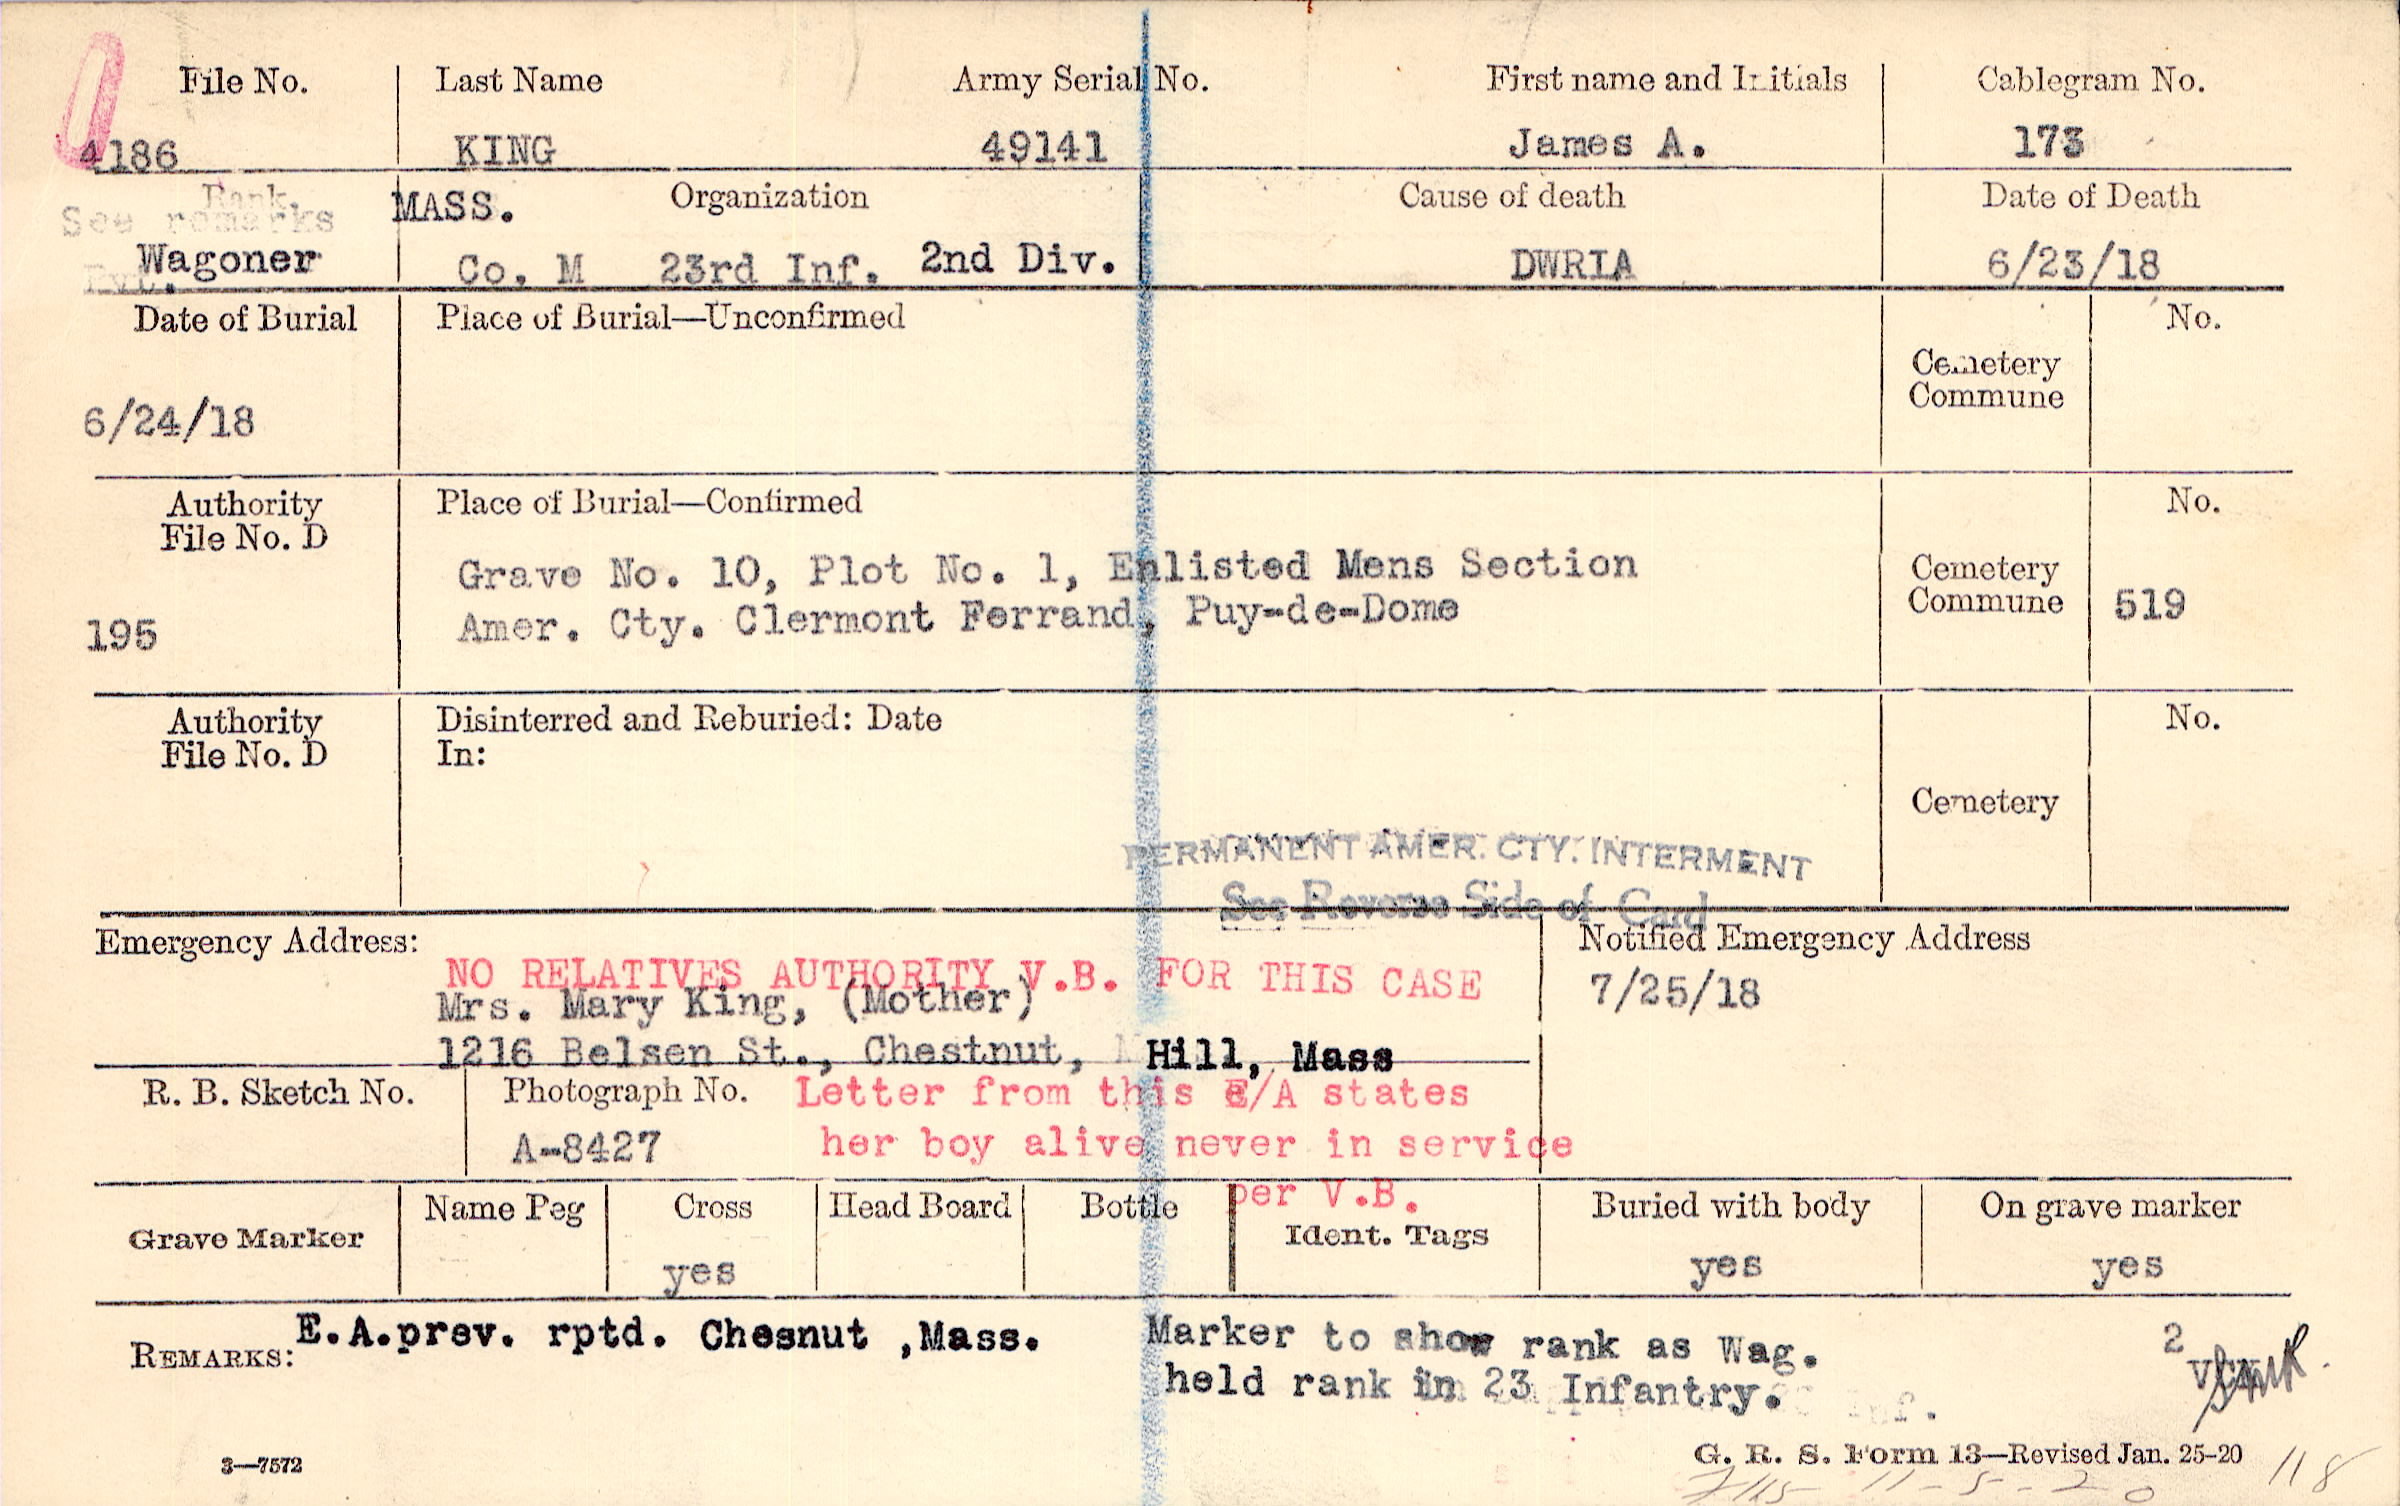 File No. Last Name Army Serial No. First name and Initials Cablegram No.
4186 KING 49141 James A. 173
Rank. MASS. Organization Cause of death Date of Death
See remarks
Wagoner Co. M 23rd Inf. 2nd Div. DWRIA 6/23/18
Pvt.
Date of Burial Place of Burial—Unconfirmed No.
Cemetery
Commune
6/24/18
Authority Place of Burial—Confirmed No.
File No. D
Grave No. 10, Plot No. 1, Enlisted Mens Section Cemetery
195 Amer. Cty. Clermont Ferrand, Puy-de-Dome Commune 519
Authority Disinterred and Reburied: Date No.
File No. D In:
Cemetery
PERMANENT AMER. CTY. INTERMENT
See Reverse Side of Card
Emergency Address: Notified Emergency Address
NO RELATIVES AUTHORITY V.B. FOR THIS CASE 7/25/18
Mrs. Mary King, (Mother)
1216 Belsen St., Chestnut, Hill, Mass
R. B. Sketch No. Photograph No. Letter from this E/A states
A-8427 her boy alive never in service
per V.B.
Grave Marker Name Peg Cross Head Board Bottle Ident. Tags Buried with body On grave marker
yes yes yes
REMARKS: E.A.prev. rptd. Chesnut ,Mass. Marker to show rank as Wag. 2
held rank in 23 Infantry. Inf.
3—7572 G. R. S. Form 13—Revised Jan. 25-20 118
11-5-20